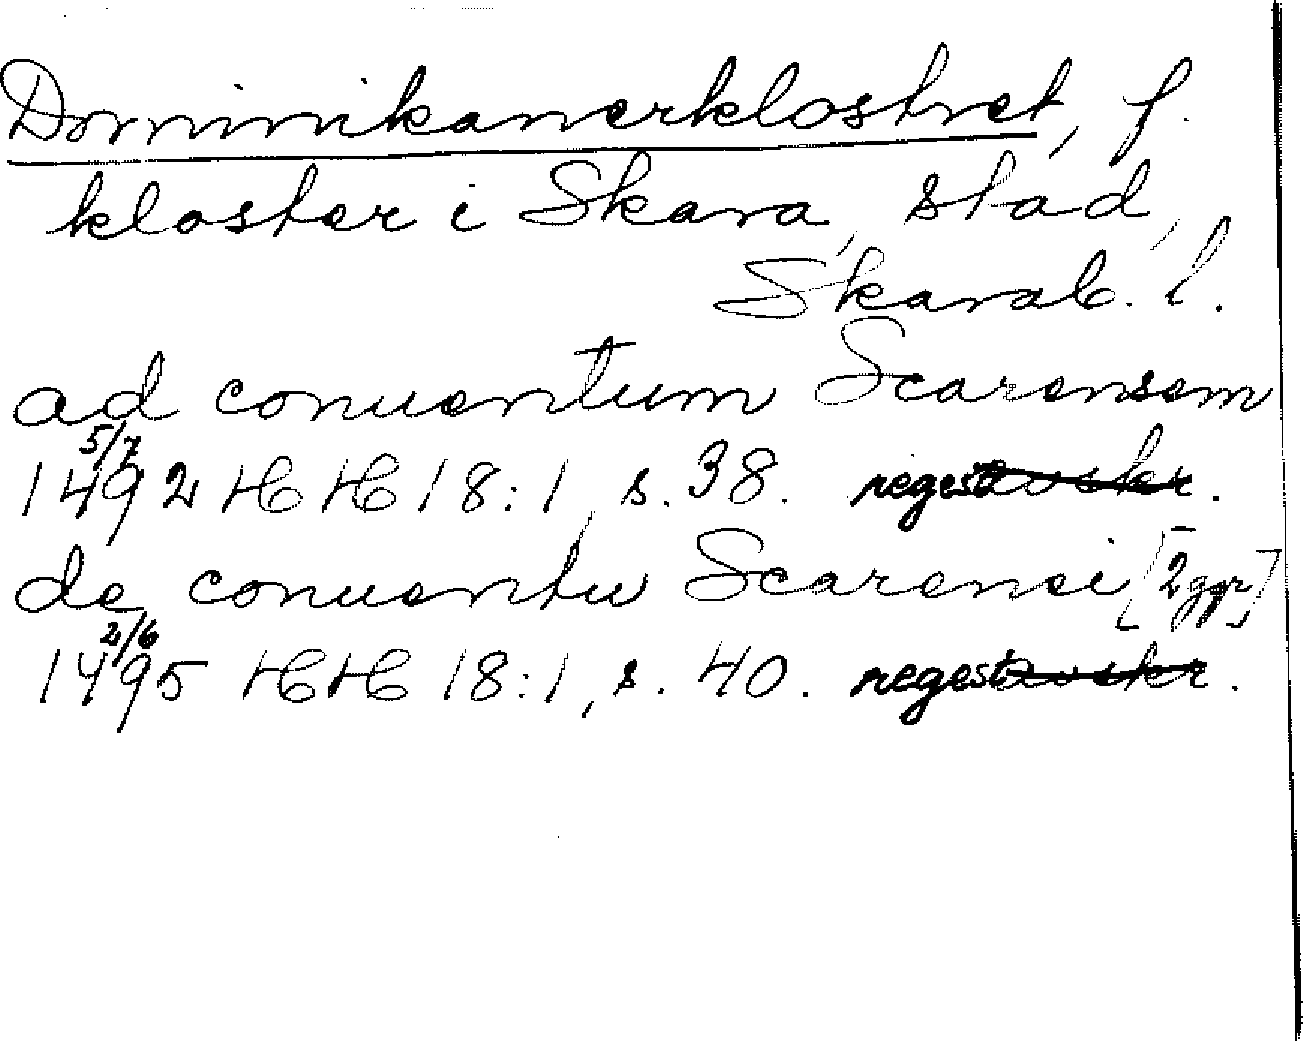 Dominikanerklostret, f.
kloster i Skara, stad,
Skarab. l.
ad conuentum Scarensem
5/7 1492 HH 18:1, s. 38. regest.
de conuentu Scarensi [2 ggr]
2/6 1495 HH 18:1, s. 40. regest.